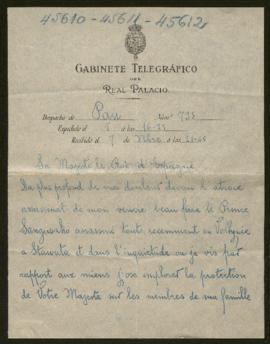 45610 - 45611 - 45612
GABINETE TELEGRÁFICO
DEL
REAL PALACIO.
Despacho de Pau Núm 735
Expedido 8 a las 16-35
Recibido 9 a las
Sa Majeste le Roi de Espagne
Du plus profond de ma douleur devant l atroce
assassinat de mon venere beau frere le Prince
Sanguszko assassine tout recemment en Volhynie
a Slawuta et dans l'inquietude ou je vis par
rapport aux miens j'ose implorer la protection
de Votre Majeste sur les membres de ma famille